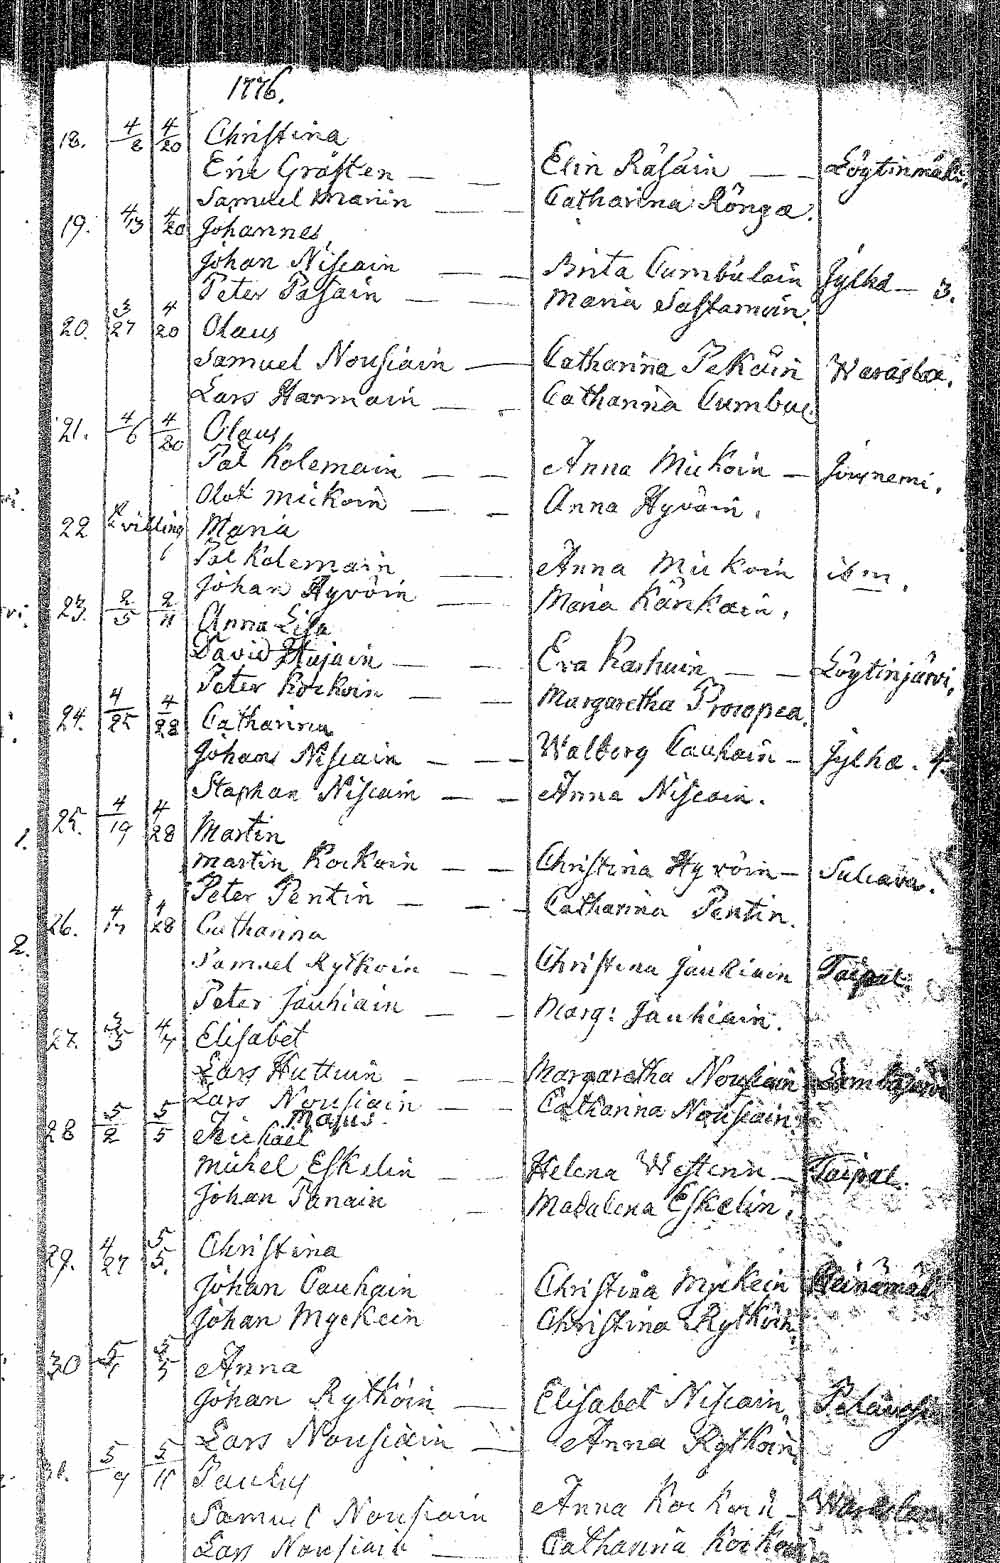 1776.
18. 4/8 4/20 Christina
Eric Gråsten — — Elin Räsäin — — Löytinmäki.
Samuel Manin — — Catharina Rönga.
19. 4/13 4/20 Johannes
Johan Niscain — — Brita Cumbulain Jylhä — 3.
Peter Pasain — — Maria Sastamoin.
20. 3/27 4/20 Olaus
Samuel Nousiain — Catharina Pekäin
Lars Harmain — — Catharina Cumbu
21. 4/6 4/20 Olaus
Pål Kolemain — — Anna Mickoin —
Olof Mickoin — — Anna Hyvöin.
22 Tvilling Maria
Pål Kolemain — Anna Mickoin ibm.
Johan Hyvöin — Maria Kånkain.
23. 2/5 2/11 Anna Lisa
David Hujain — — Eva Kashuin — — Löytinjärvi,
Peter Kockoin — — Margaretha Procopea.
24. 4/25 4/28 Catharina
Johan Niscain — — Walborg Cauhain — Jylhä. 4.
Staphan Niscain — — Anna Niscain.
25. 4/19 4/28 Martin
Martin Kockoin — — Christina Hyvöin — Suleava.
Peter Pentin — — Catharina Pentin.
26. 4/17 4/28 Catharina
Samuel Rytkoin — — Christina Jauhiain Taipal.
Peter Jauhiain — — Marg: Jauhiain.
27. 4/7 Elisabet
Lars Huttuin — — Margaretha Nousiain
Lars Nousiain — — Catharina Nousiain.
Majus.
28 5/2 5/5 Michael
Michel Eskelin — Helena Westenin — Taipal.
Johan Panain — Madalena Eskelin.
29. 4/27 5/5. Christina
Johan Cauhain Christina Myckein Heinämäk
Johan Myckein Christina Rytköin.
30 5/5 Anna
Johan Rytköin — Elisabet Niscain
Lars Nousiain — Anna Rytköin
31. 5/9 5/11 Paulus
Samuel Nousiain Anna Kockoin —
Lars Nousiain — Catharina Kockoin